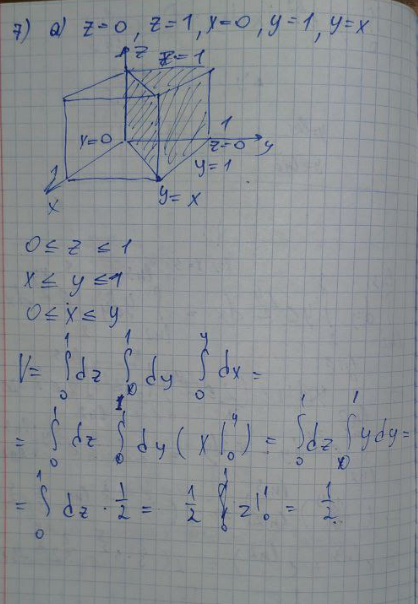 7) a) z=0, z=1, x=0, y=1, y=x
z
z=1
x=0
1
z=0
y
y=1
1
x
y=x
0 ≤ z ≤ 1
x ≤ y ≤ 1
0 ≤ x ≤ y
V = ∫₀¹ dz ∫₀¹ dy ∫₀ʸ dx =
= ∫₀¹ dz ∫₀¹ dy (x|₀ʸ) = ∫₀¹ dz ∫₀¹ y dy =
= ∫₀¹ dz · 1/2 = 1/2 z|₀¹ = 1/2